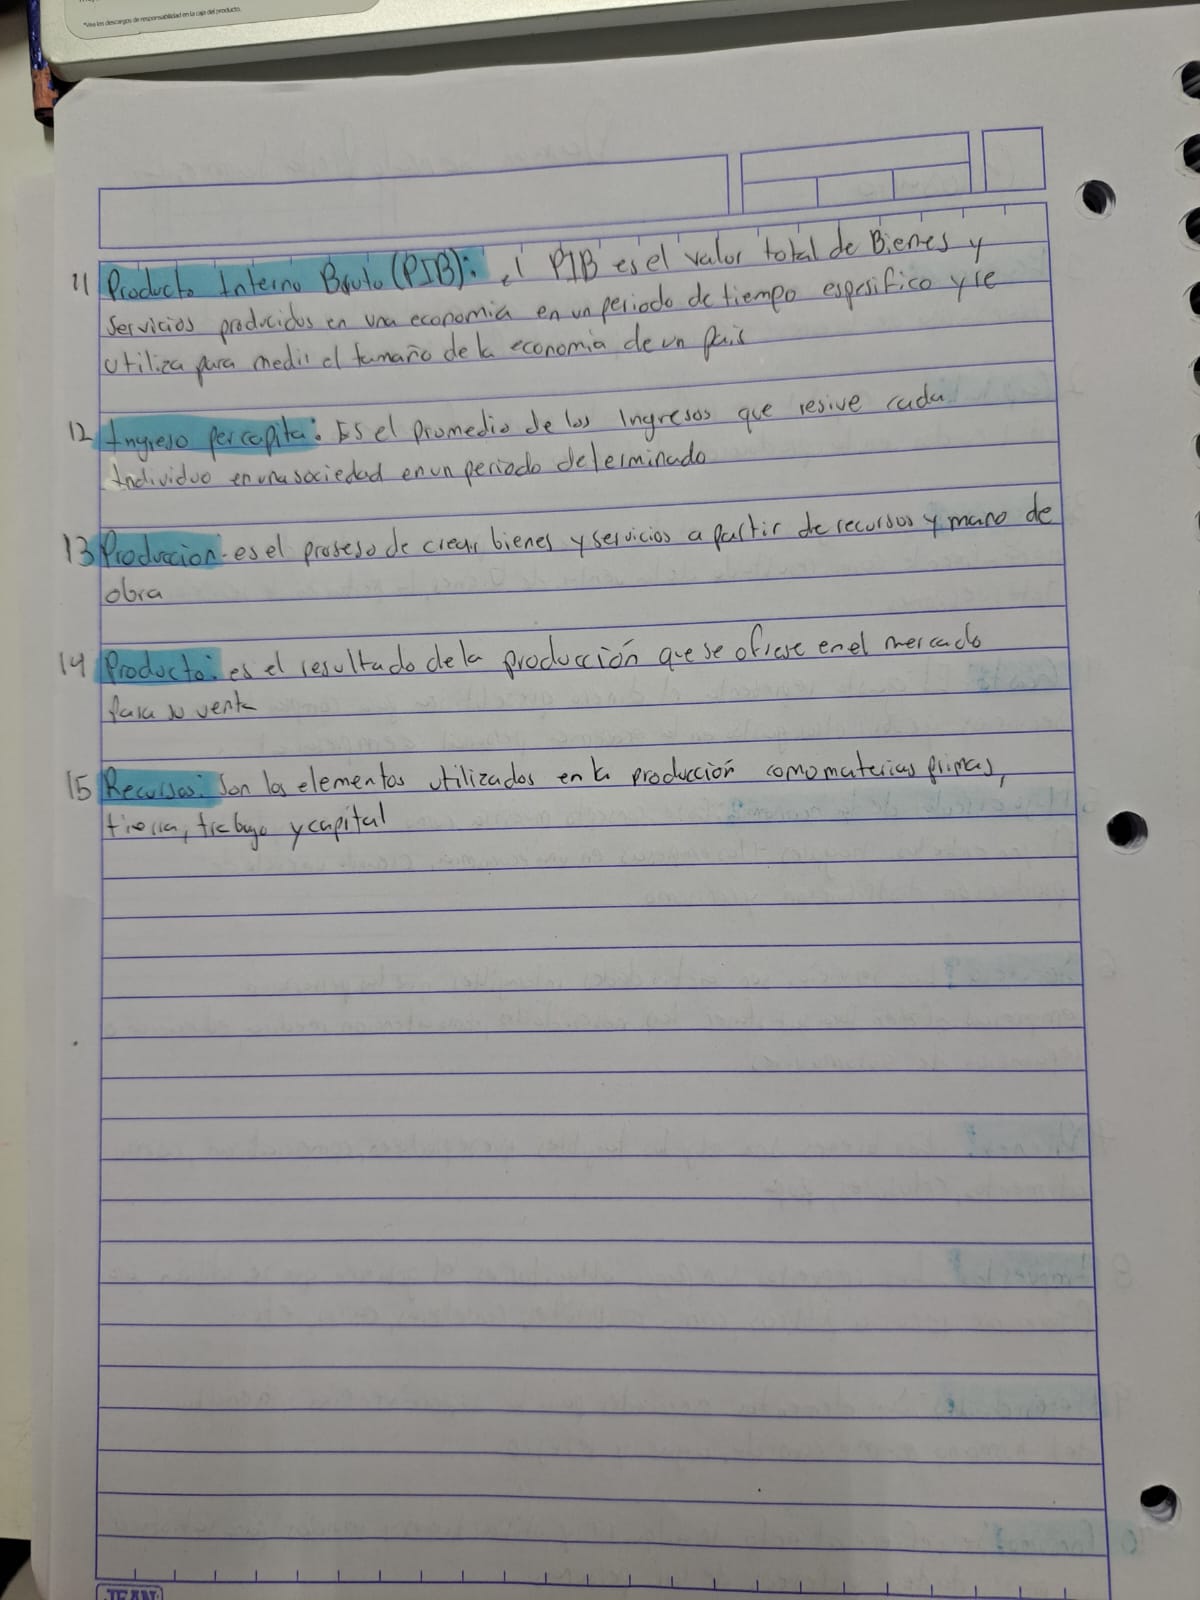 *Vea los descargos de responsabilidad en la caja del producto.
11 Producto Interno Bruto (PIB): el PIB es el valor total de Bienes y
servicios producidos en una economia en un periodo de tiempo espesifico y se
utiliza para medir el tamaño de la economia de un pais
12 Ingreso per capita: Es el promedio de los Ingresos que resive cada
Individuo en una sociedad en un periodo determinado
13 Produccion: es el proseso de crear bienes y servicios a partir de recursos y mano de
obra
14 Producto: es el resultado de la producción que se ofrese en el mercado
para su venta
15 Recursos: Son los elementos utilizados en la producción como materias primas,
tierra, trabajo y capital
JEAN